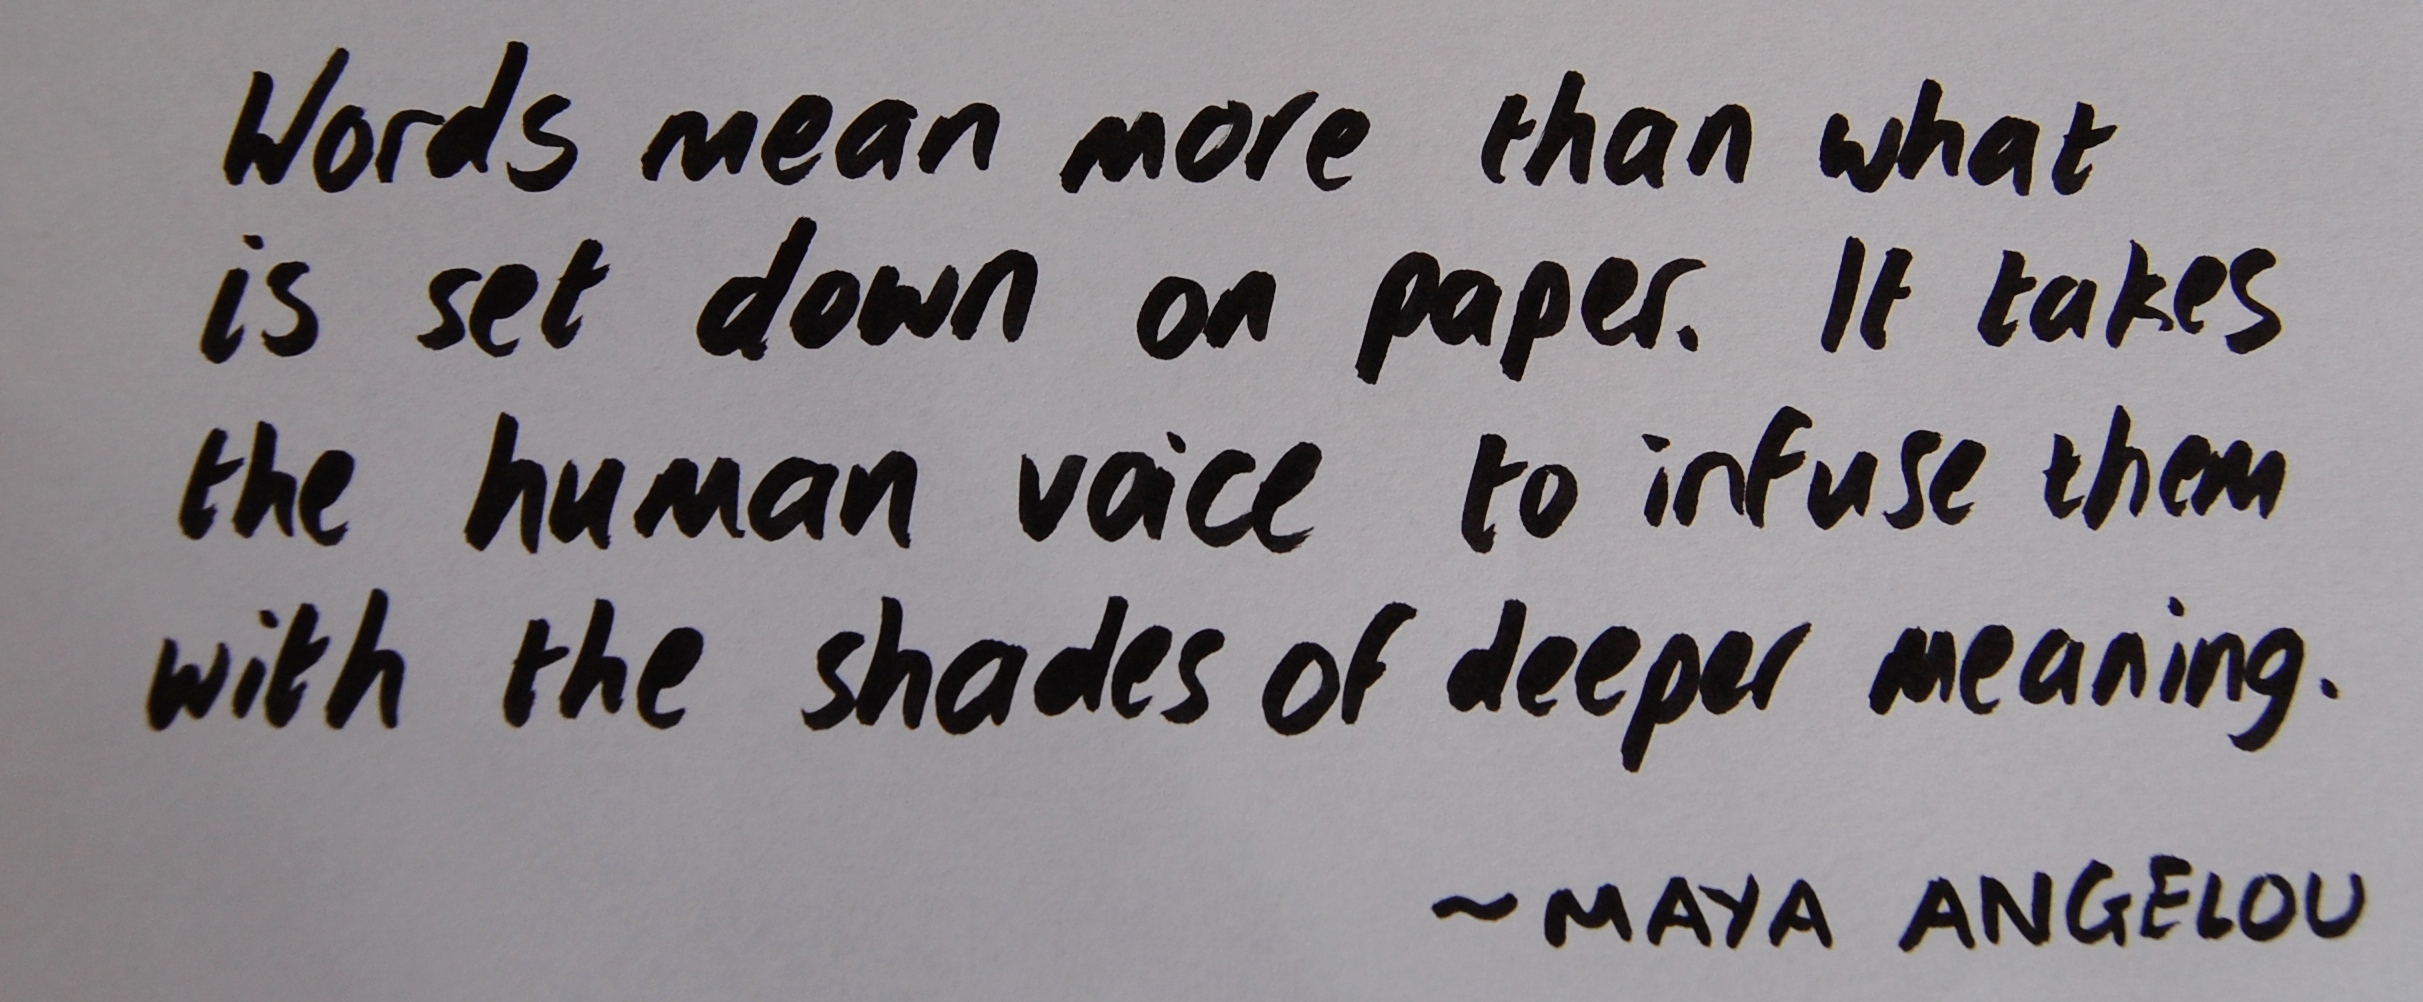 Words mean more than what
is set down on paper. It takes
the human voice to infuse them
with the shades of deeper meaning.
~MAYA ANGELOU